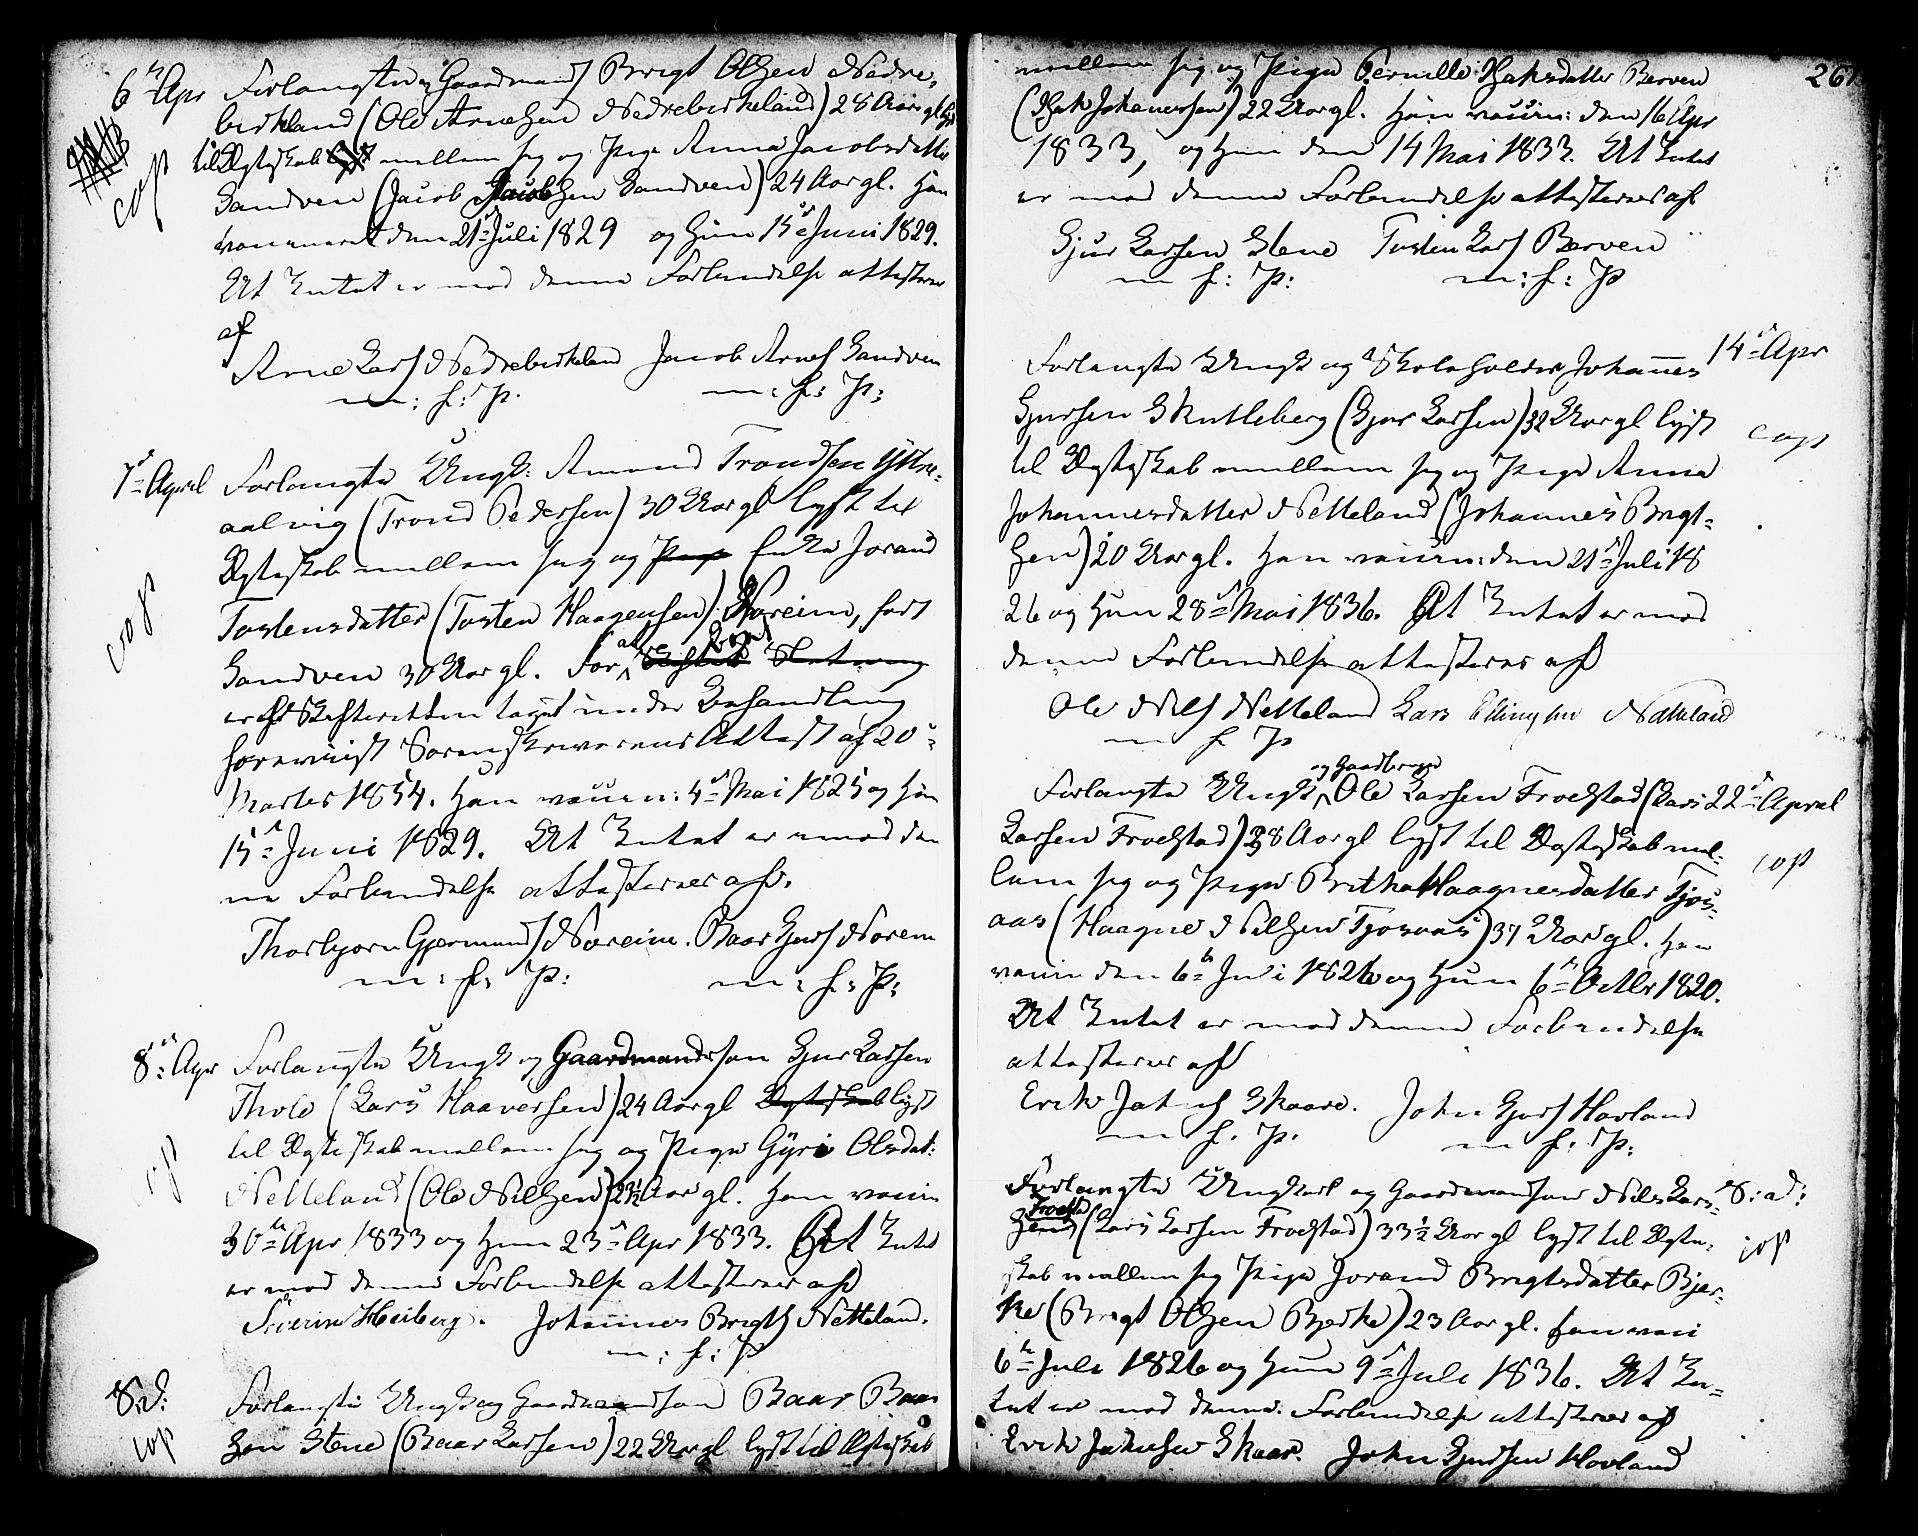 6te Apr Forlangte Gaardmands Brigt Olsen Nedre-
birkeland (Ole Arnesen Nedrebirkeland) 28 Aar gl lyst
til Ægteskab mellem sig og Pige Anna Jacobsdatter
cop
Sandven (Jacob Jacobsen Sandven) 24 Aar gl. Han
vaccineret den 21de Juli 1829 og Hun 15de Juni 1829.
At Intet er mod denne Forbindelse attesteres
af
Arne Lars Nedrebirkeland Jacob Arnes Sandven
m: f: P. m: f: P:
7de April Forlangte Ungk: Amund Trondsen Ytre-
aalvig (Trond Pedersen) 30 Aar gl lyst til
Ægteskab mellem sig og Pige Enke Jorand
cop
Torstensdatter (Torsten Haagensen) Noreim, født
Sandven 30 Aar gl. For at
er af Skifteretten taget under Behandling
foreviist Sorenskriverens Attest af 20de
Marts 1854. Han vaccin: 4de Mai 1825 og Hun
15de Juni 1829. At Intet er mod den
ne Forbindelse attesteres af.
Thorbjorn Gjermunds Noreim. Baar Gjers Noreim
m: f: P: m: f: P:
8de Apr Forlangte Ungk og Gaardmandssøn Gjur Larsen
Tholo (Lars Haaversen) 24 Aar gl Ægteskab lyst
til Ægteskab mellem sig og Pige Gyri Olsdat:
cop
Netteland (Ole Nilsen) 23½ Aar gl. Han vaccin
30te Apr 1833 og Hun 23de Apr 1833. At Intet
er mod denne Forbindelse attesteres af
Severin Heiberg. Johannes Brigts Netteland.
m: f: P
S:D: Forlangte Ungk og Gaardmandssøn Baar Baar
cop
sen Stene (Baar Larsen) 22 Aar gl lyst til Ægteskab
261
mellem sig og Pige Pernille Isaksdatter Berven
(Isak Johannessen) 22 Aar gl. Han vaccin: den 16 Apr
1833, og Hun den 14 Mai 1833. At Intet
er mod denne Forbindelse attesteres af
Gjur Larsen Stene Torsten Lars Berven
m f: P: m: f: P
Forlangte Ungk og Skoleholder Johannes 14de Apr
Gjursen Skutleberg (Gjur Larsen) 32 Aar gl lyst
cop
til Ægteskab mellem sig og Pige Anna
Johannesdatter Netteland (Johannes Brigt-
sen) 20 Aar gl. Han vaccin: den 21de Juli 18
26 og Hun 28de Mai 1836. At Intet er mod
denne Forbindelse attesteres af
Ole Nils Netteland Lars Ellingsen Netteland
m f P
og Gaardbruger
Forlangte Ungk Ole Larsen Froestad (Lars 22de April
Larsen Froestad) 38 Aar gl lyst til Ægteskab mel-
cop
lem sig og Pige Britha Haagnesdatter Tjos-
aas (Haagne Nilsen Tjosaas) 37 Aar gl. Han
vaccin den 6te Juli 1826 og Hun 6te Octbr 1820.
At Intet er mod denne Forbindelse
attesteres af
Erik Jakobs Skaare. John Gjers Hovland
m f. P. m f: P:
Forlangte Ungkarl og Gaardmandssøn Nils Lars- S: D:
Froestad
sen (Lars Larsen Froestad) 33½ Aar gl lyst til Ægte-
cop
skab mellem sig Pige Jorand Brigtsdatter Bjer-
ke (Brigt Olsen Bjerke) 23 Aar gl. Han vacci
6te Juli 1826 og Hun 9de Juli 1836. At In-
tet er mod denne Forbindelse attesteres af
Erik Jakobsen Skaar. John Gjersen Hovland